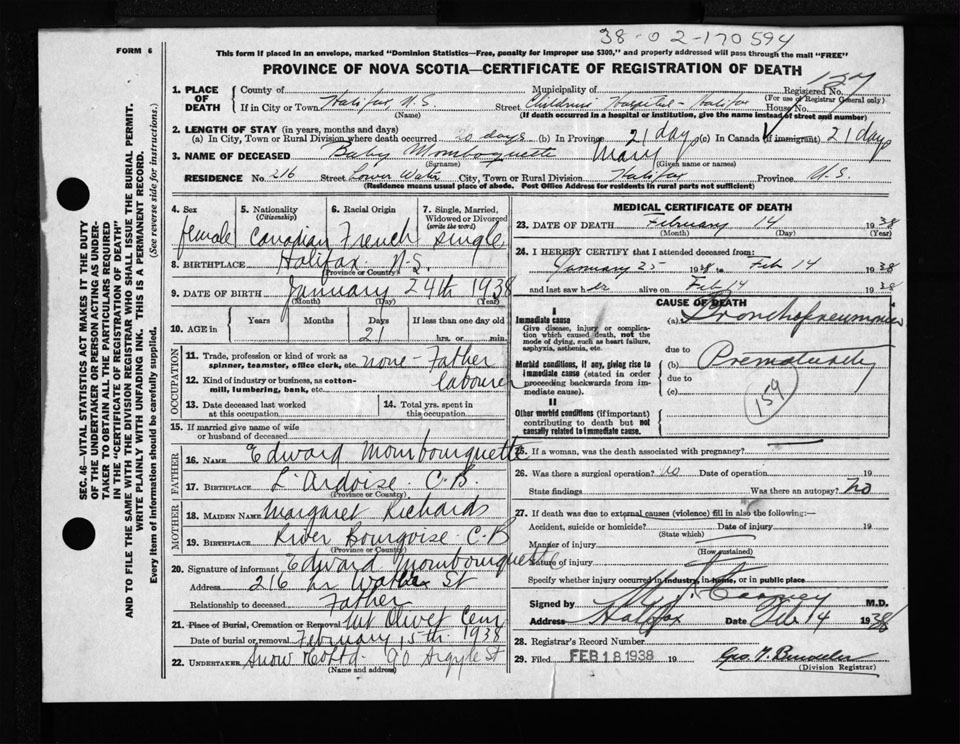 38-02-170594
FORM 6
This form if placed in an envelope, marked "Dominion Statistics—Free, penalty for improper use $300," and properly addressed will pass through the mail "FREE"
PROVINCE OF NOVA SCOTIA—CERTIFICATE OF REGISTRATION OF DEATH
1. PLACE OF DEATH
County of Municipality of Registered No.
(For use of Registrar General only)
If in City or Town Halifax, N.S. Street Childrens Hospital - Halifax House No.
(Name) (If death occurred in a hospital or institution, give the name instead of street and number)
2. LENGTH OF STAY (in years, months and days)
(a) In City, Town or Rural Division where death occurred 20 days (b) In Province 21 days (c) In Canada (if immigrant) 21 days
3. NAME OF DECEASED Baby Mombourquette Mary
(Surname) (Given name or names)
RESIDENCE No. 216 Street Lower Water City, Town or Rural Division Halifax Province N.S.
(Residence means usual place of abode. Post Office Address for residents in rural parts not sufficient)
4. Sex female
5. Nationality (Citizenship) Canadian
6. Racial Origin French
7. Single, Married, Widowed or Divorced (write the word) single
8. BIRTHPLACE Halifax N.S.
(Province or Country)
9. DATE OF BIRTH January 24th 1938
(Month) (Day) (Year)
10. AGE in Years Months Days If less than one day old
21 hrs. or min.
OCCUPATION
11. Trade, profession or kind of work as spinner, teamster, office clerk, etc. none - Father
12. Kind of industry or business, as cotton-mill, lumbering, bank, etc. labourer
13. Date deceased last worked at this occupation
14. Total yrs. spent in this occupation
15. If married give name of wife or husband of deceased
FATHER
16. NAME Edward Mombourquette
17. BIRTHPLACE L'Ardoise C.B.
(Province or Country)
MOTHER
18. MAIDEN NAME Margaret Richards
19. BIRTHPLACE River Bourgoise C.B
(Province or Country)
20. Signature of informant Edward Mombourquette
Address 216 Lr Water St
Relationship to deceased Father
21. Place of Burial, Cremation or Removal Mt Olivet Cem
Date of burial or removal February 15th 1938
22. UNDERTAKER Snow & Co Ltd 90 Argyle St
(Name and address)
MEDICAL CERTIFICATE OF DEATH
23. DATE OF DEATH February 14 1938
(Month) (Day) (Year)
24. I HEREBY CERTIFY that I attended deceased from:
January 25 1938 to Feb 14 1938
and last saw her alive on Feb 14 1938
CAUSE OF DEATH
I
Immediate cause
Give disease, injury or complication which caused death, not the mode of dying, such as heart failure, asphyxia, asthenia, etc.
(a) Bronchopneumonia
due to
Morbid conditions, if any, giving rise to immediate cause (stated in order proceeding backwards from immediate cause).
(b) Prematurity
due to
(c)
159
II
Other morbid conditions (if important) contributing to death but not causally related to immediate cause.
25. If a woman, was the death associated with pregnancy?
26. Was there a surgical operation? no Date of operation 19
State findings Was there an autopsy? no
27. If death was due to external causes (violence) fill in also the following:—
Accident, suicide or homicide? Date of injury 19
(State which)
Manner of injury
(How sustained)
Nature of injury
Specify whether injury occurred in industry, in home, or in public place
Signed by M.D.
Address Halifax Date Feb 14 1938
28. Registrar's Record Number
29. Filed FEB 18 1938 19
(Division Registrar)
SEC. 46—VITAL STATISTICS ACT MAKES IT THE DUTY OF THE UNDERTAKER OR PERSON ACTING AS UNDERTAKER TO OBTAIN ALL THE PARTICULARS REQUIRED IN THE "CERTIFICATE OF REGISTRATION OF DEATH"
AND TO FILE THE SAME WITH THE DIVISION REGISTRAR WHO SHALL ISSUE THE BURIAL PERMIT.
WRITE PLAINLY WITH UNFADING INK. THIS IS A PERMANENT RECORD.
Every item of information should be carefully supplied. (See reverse side for instructions.)